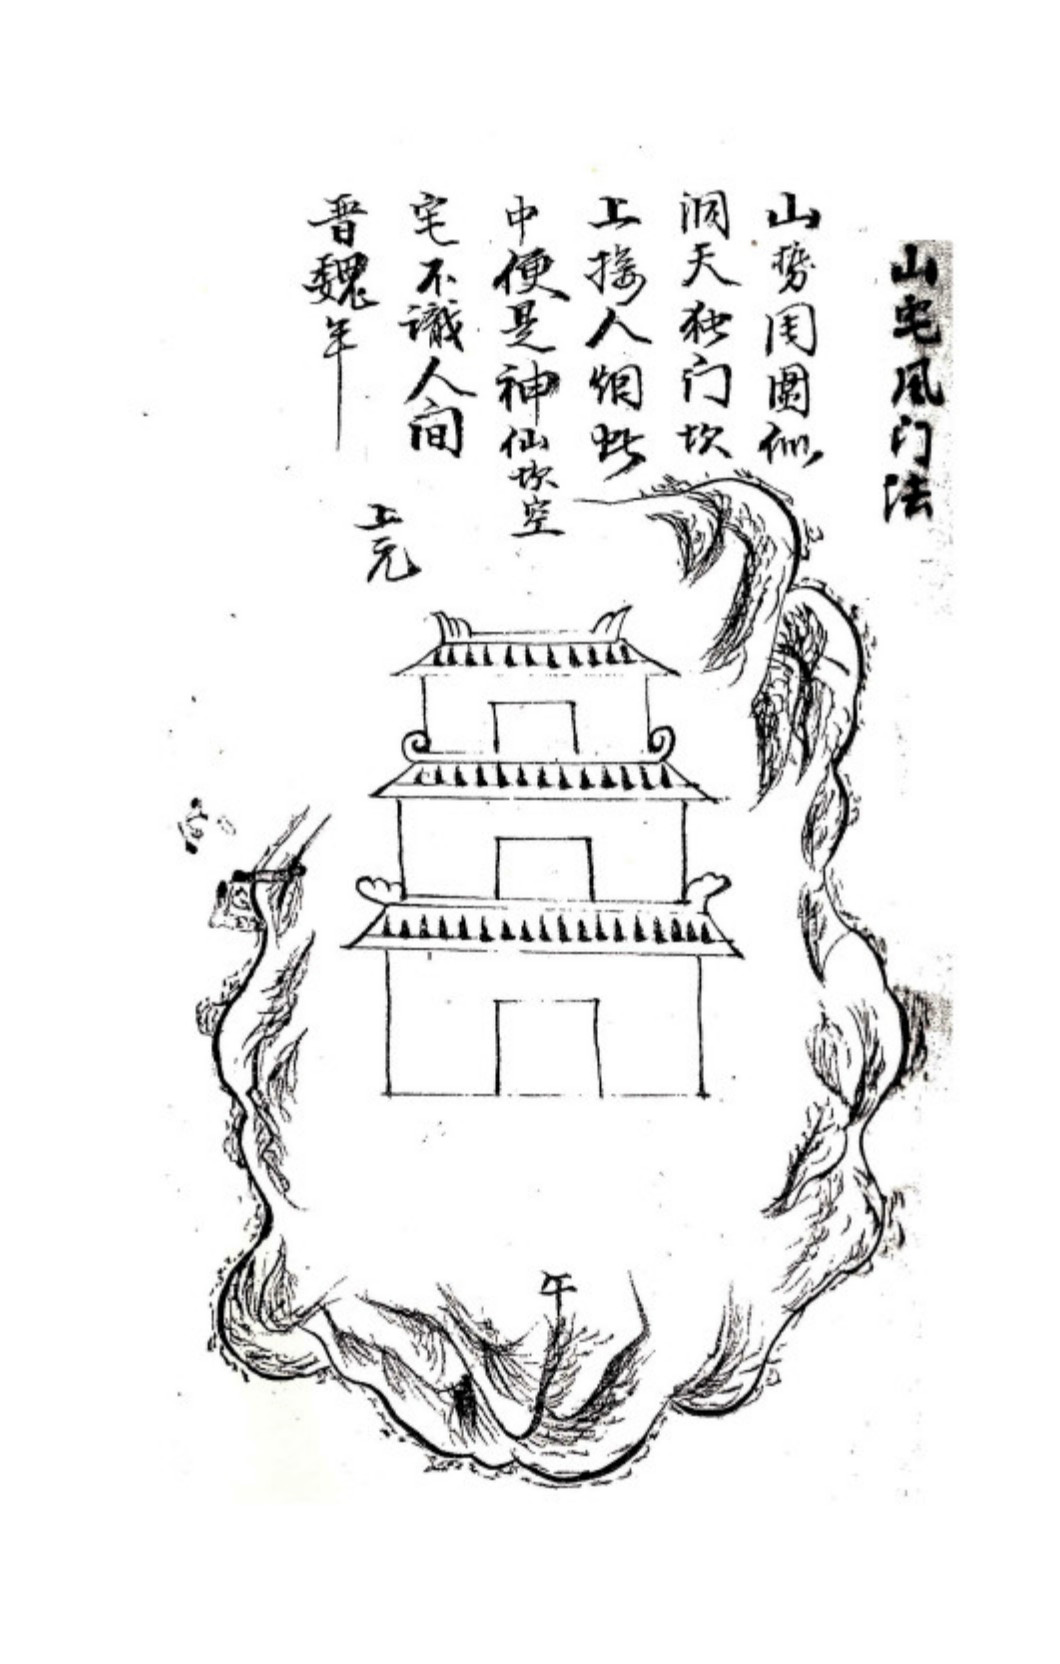 山宅風门法
山势周圍似
洞天独门坎
上接人烟此
中便是神仙
坎空
宅不識人间
晋魏年
上元
午